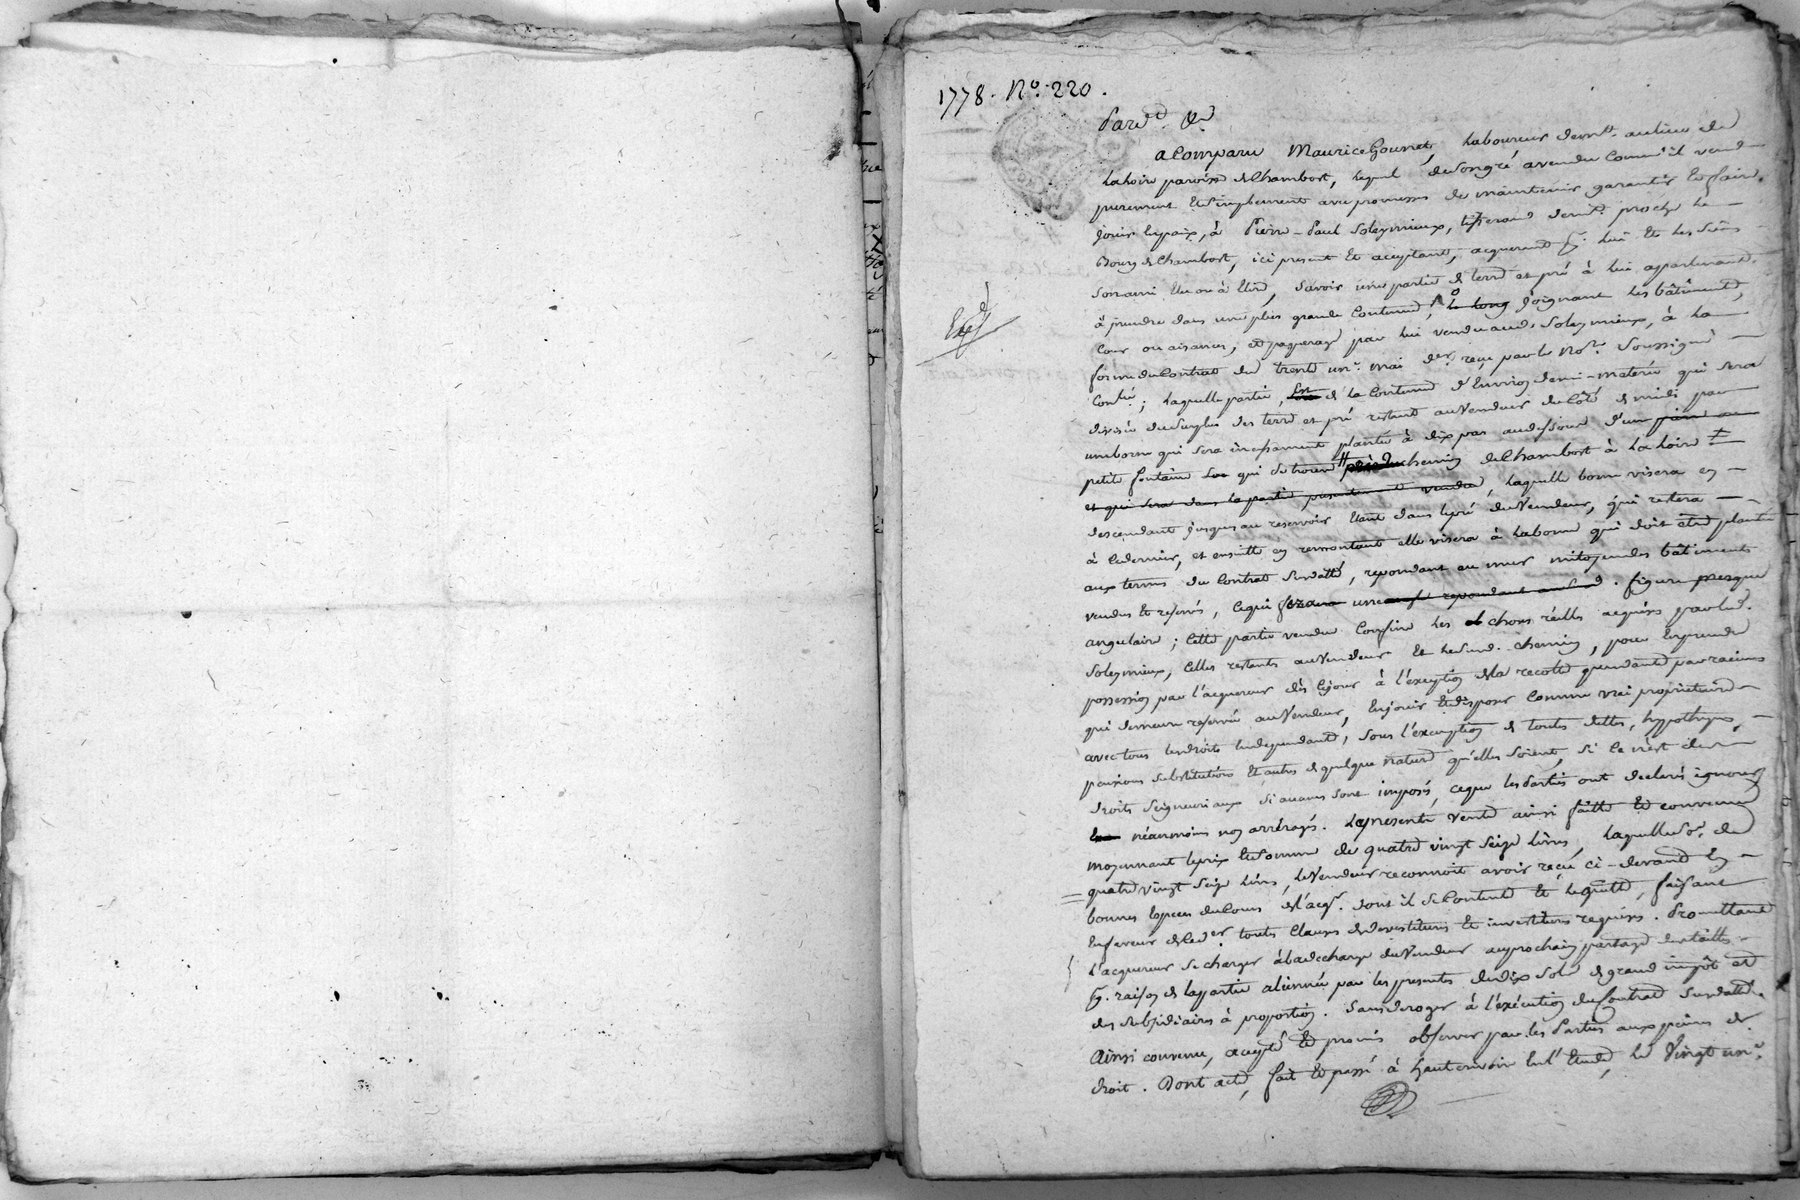 1778. No. 220.
Pard.t &c.
a Comparu Maurice Gounet, Laboureur demt. au lieu de
La hoire paroisse de Chambost, lequel de son gré a vendu comm'il vend
purement et simplement avec promesses de maintenir garantir et faire
jouir en paix, à Pierre-Paul Soleymieux, tisserand demt. proche le
Bourg de Chambost, ici present et acceptant, acquerant pr. lui et les siens
son ami elu ou à Elire, savoir une partie de terre et pré à lui appartenant
à prendre dans une plus grande Contenue, le long joignant les bâtiments,
Cour ou aisances, et paquerage par lui vendu aud. Soleymieux, à la
forme du Contrat du trente un mai der. reçu par le Nore. Soussigné
Conlé; laquelle partie, de la Contenue d'Environ demi-meterée qui sera
divisée du Surplus des terre et pré restant au Vendeur du Côté de midi par
une borne qui sera incessament plantée à dix pas au dessous d'une
petite fontaine qui se trouve près du chemin de Chambost à La hoire
et qui sera dans la partie presentement vendue, laquelle borne visera en
descendant jusques au reservoir Etant dans le pré du Vendeur, qui restera
à Ce dernier, et ensuitte en remontant elle visera à la borne qui doit etre plantée
aux termes du Contrat Surdatté, repondant au mur mitoyen des bâtiments
vendus et reservés, Ce qui fera une figure presque
angulaire; Cette partie vendue Confine les choses réelles acquises par led.
Soleymieux, Celles restantes au Vendeur et le Surd. chemin, pour En prendre
possession par l'acquereur dès Ce jour à l'exception de la recolte pendante par racines
qui demeure reservée au Vendeur, En jouir et disposer Comme vrai proprietaire
avec tous les droits En dependants, Sous l'exemption de toutes dettes, hyppotheques,
pensions substitutions et autres de quelque nature qu'elles soient, si ce n'est des
droits Seigneuriaux Si aucuns sont imposés, ce que les Parties ont declaré ignorer
néanmoins non arréragés. La presente vente ainsi faitte et convenue
moyennant le prix et Somme de quatre vingt Seize Livres, laquelle Soe. de
quatre vingt Seize Livres, le Vendeur reconnoit avoir reçu ci-devant En
bonnes Especes du Cours de l'acqr. dont il Se Contente et le quitte, faisant
En faveur de Ce der. toutes Clauses de devestitures et investitures requises. Promettant
L'acquereur Se charger à la decharge du Vendeur au prochain partage des tailles
En raison de la partie alienée par les presentes de dix Sols de grand impôt et
des Subsidiaires à proportion. Sans deroger à l'exécution du Contrat Surdatté.
Ainsi convenu, accepté et promis observer par les Parties aux peines de
droit. Dont acte, fait et passé à hauterivoire En l'Etude, le Vingt un
Exp.d